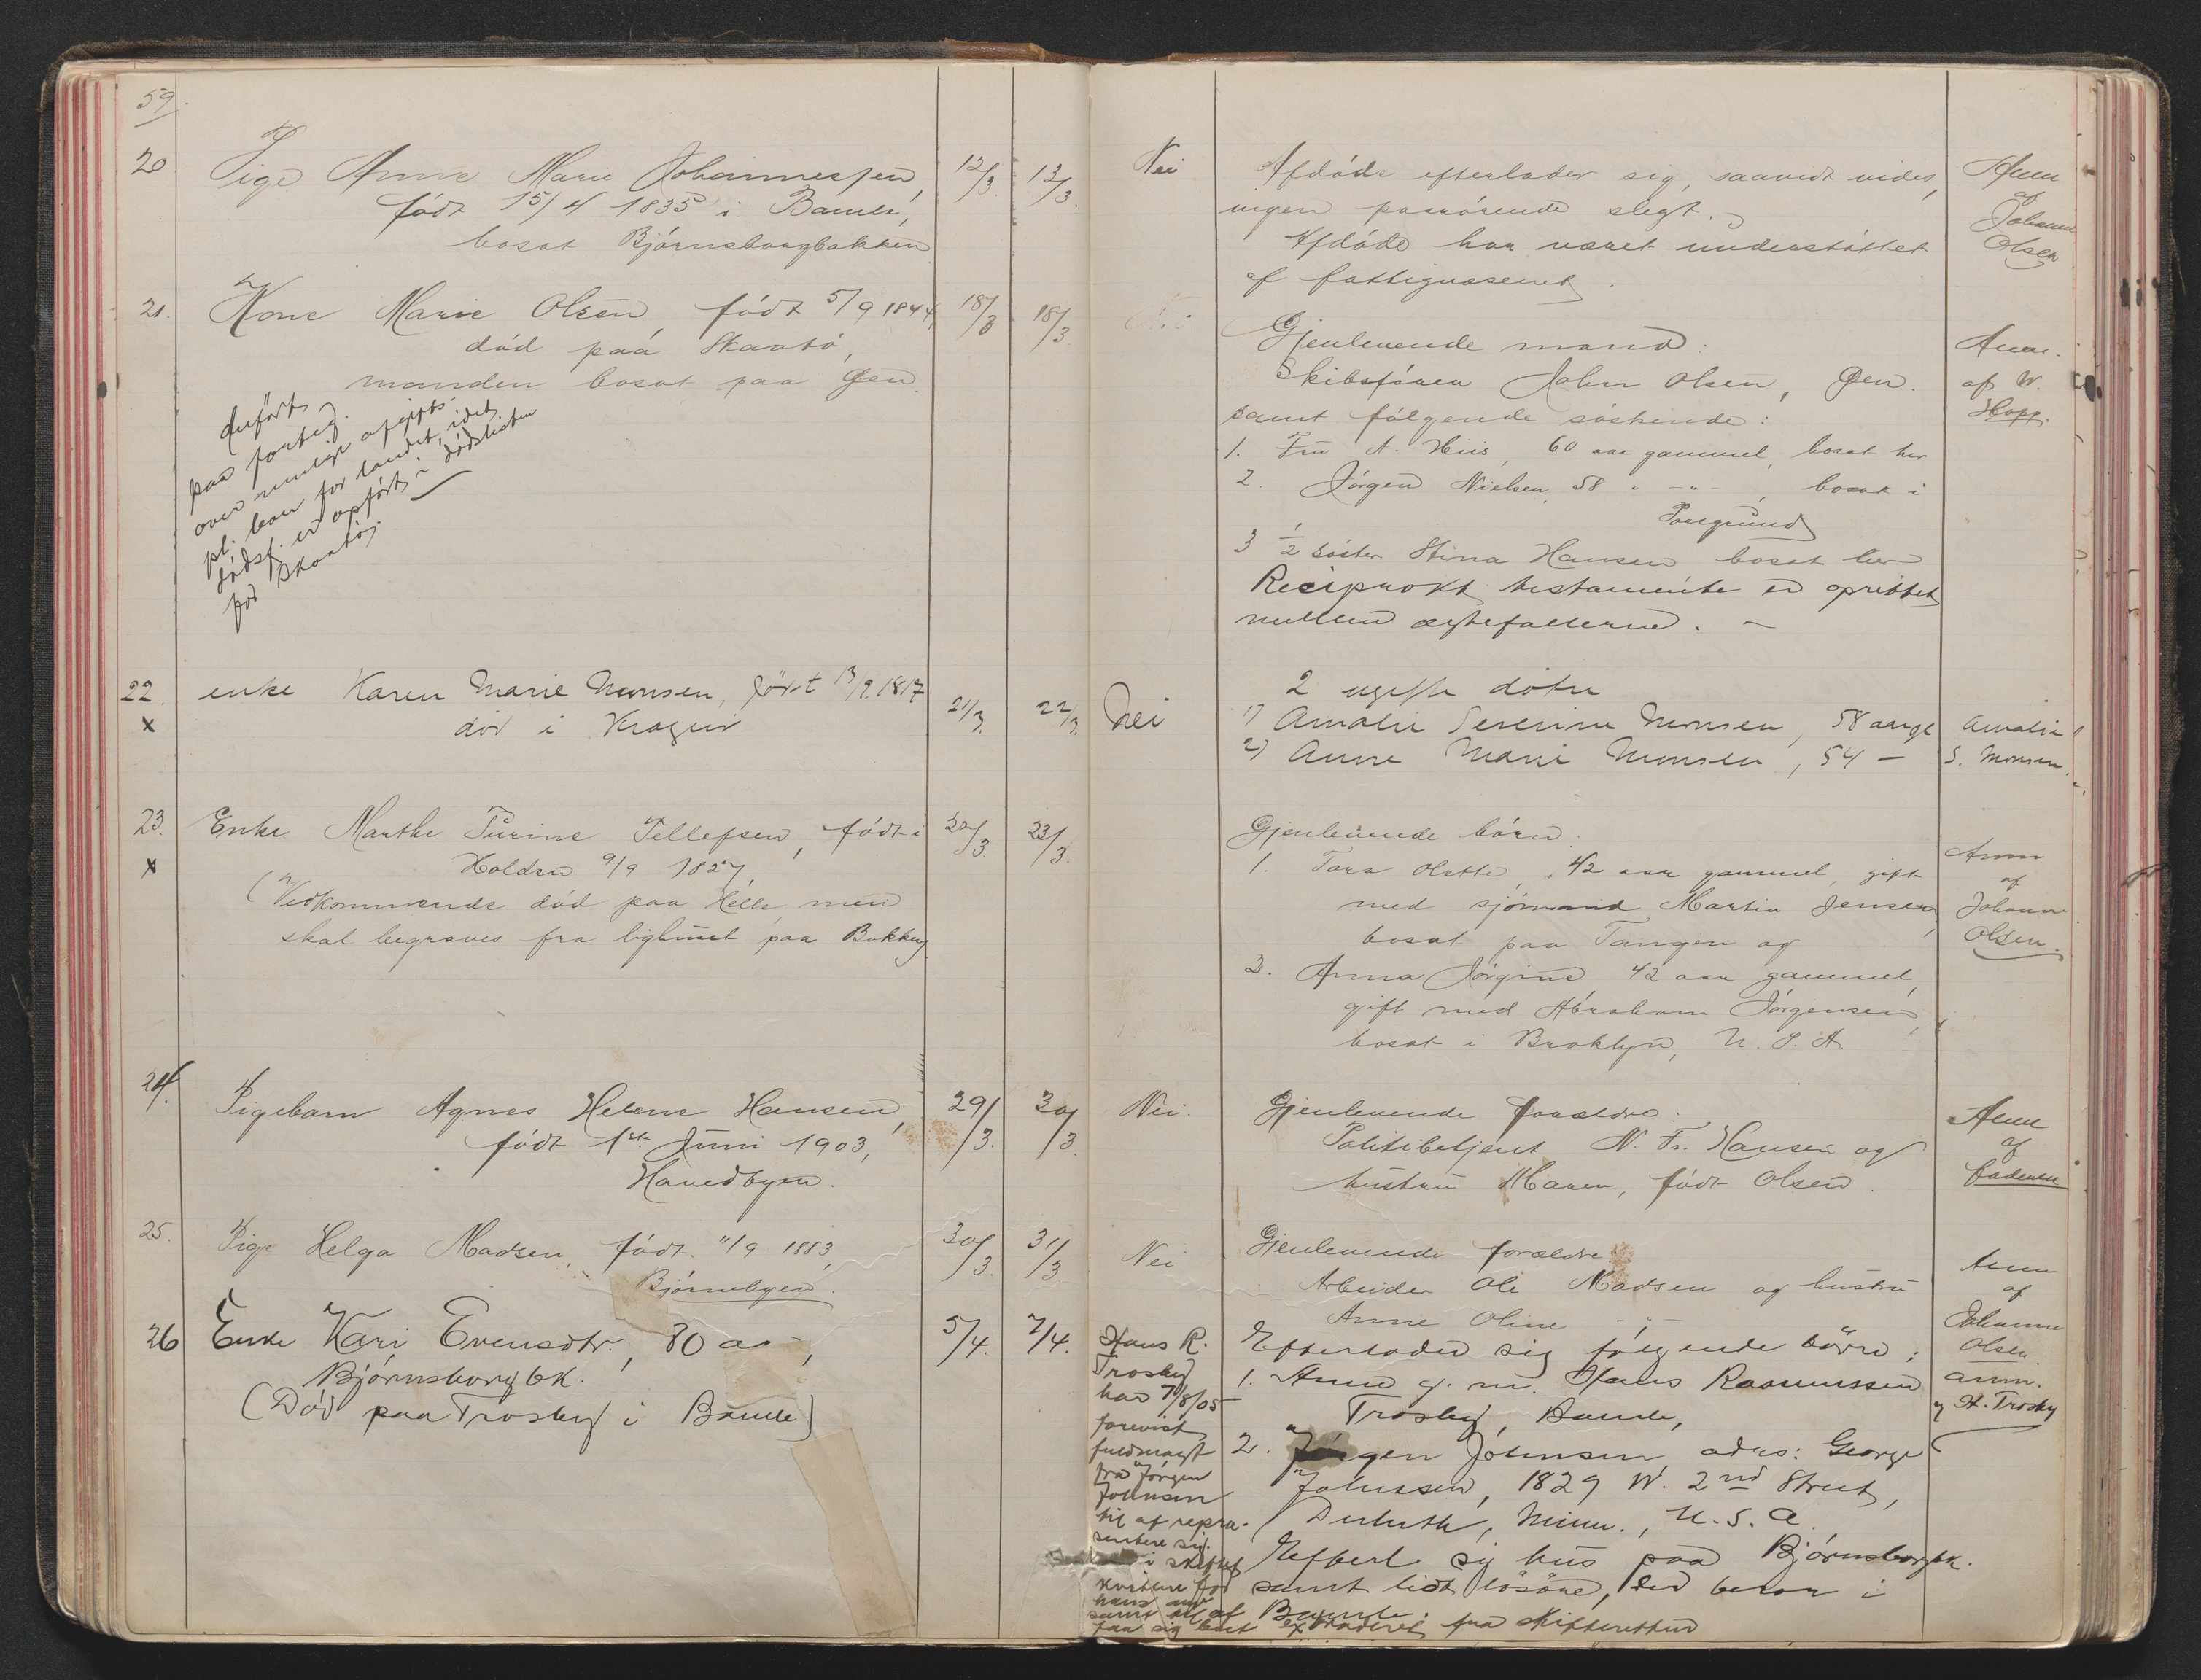 59.
20 Pige Anne Marie Johannessen, 12/3. 13/3.
født 15/4 1835 i Bamle,
bosat Bjørnsborgbakken
21. Kone Marie Olsen, født 5/9 1844, 18/3 18/3.
død paa Skaatø,
manden bosat paa Øen.
Anført
paa forteg.
over mulige afgifts-
pl. bon for landet, idet
dødsf. er opført i dødslisten
for Skaatø.
22. enke Karen Marie Monsen, født 13/9. 1817 21/3. 22/3.
x død i Kragerø
23. Enke Marthe Turine Tellefsen, født i 20/3. 23/3.
x Holden 9/9 1827,
(Vedkommende død paa Helle, men
skal begraves fra lighuset paa Bokkey
24. Pigebarn Agnes Helene Hansen, 29/3. 30/3.
født 1ste Juni 1903,
Havedbyen.
25. Pige Helga Madsen, født 11/9 1883, 30/3. 31/3
Bjørnebyen.
26 Enke Kari Evensdtr., 80 aar, 5/4. 7/4.
Bjørnsborgbk.
(Død paa Trosby i Bamle)
Nei Afdøde efterlader sig, saavidt vides,
ingen paarørende slegt.
Afdøde har været understøttet
af fattigvæsenet.
Anm
af
Johanne
Olsen
Gjenlevende mand:
Skibsfører John Olsen, Øen.
samt følgende søskende:
1. Fru A. Hiis, 60 aar gammel, bosat her
2. Jørgen Nielsen, 58 " -"- , bosat i
Porsgrund
3 1/2 søster Stina Hansen bosat her
Reciprokt testamente er oprettet
mellem ægtefællerne. –
Anm.
af W.
Hopp.
nei 2 ugifte døtre
1) Amalie Severine Monsen, 58 aar gl
2) Anne Marie Monsen, 54 –
Amalie
S. Monsen.
Gjenlevende børn:
1. Tara Olette, 42 aar gammel, gift
med sjømand Martin Jensen,
bosat paa Tangen og
2. Anna Jørgine 42 aar gammel,
gift med Abraham Jørgensen,
bosat i Broklyn, U. S. A.
Anm
af
Johanne
Olsen.
Nei. Gjenlevende forældre:
Politibetjent N. Fr. Hansen og
hustru Maren, født Olsen.
Anm
af
faderen
Nei Gjenlevende forældre:
Arbeider Ole Madsen og hustru
Anne Oline -"-
Anm
af
Johanne
Olsen.
Hans R.
Trosby
har 7/8/05
forevist
fuldmagt
fra Jørgen
Johnsen
til at repræ-
sentere sig
i skiftet
kvittere for
hans arv
samt til at
faa sig boet extraderet fra skifteretten
Efterlader sig følgende børn:
1. Anne g. m. Hans Rasmussen
Trosby, Bamle,
2. Jørgen Johnsen, adrs: George
Johnsen, 1829 W. 2nd Street,
Duluth, Minn., U. S. A.
Efterl. sig hus paa Bjørnsborgbk.
samt lidt løsøre, der beror i
Bamle.
anm.
H. Trosby